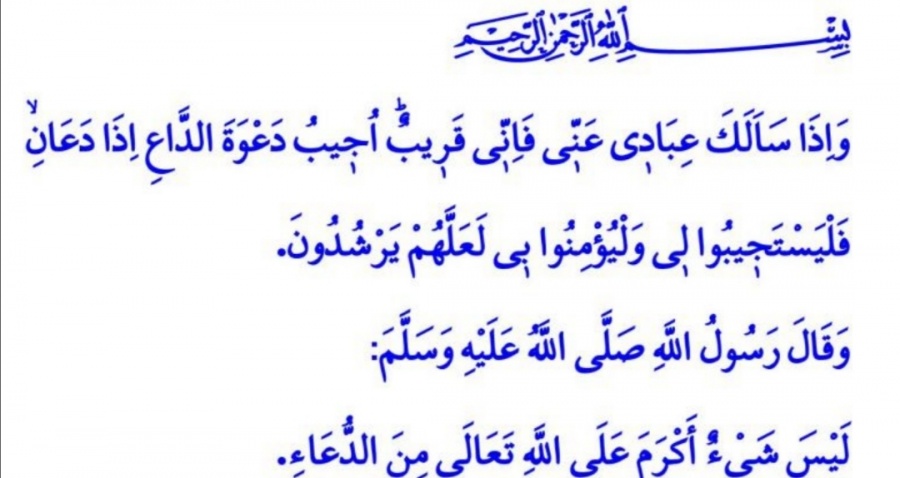 بِسْمِ اللهِ الرَّحْمٰنِ الرَّحِيمِ
وَاِذَا سَاَلَكَ عِبَادٖى عَنّٖى فَاِنّٖى قَرٖيبٌؕ اُجٖيبُ دَعْوَةَ الدَّاعِ اِذَا دَعَانِۙ
فَلْيَسْتَجٖيبُوا لٖى وَلْيُؤْمِنُوا بٖى لَعَلَّهُمْ يَرْشُدُونَ.
وَقَالَ رَسُولُ اللَّهِ صَلَّى اللَّهُ عَلَيْهِ وَسَلَّمَ:
لَيْسَ شَيْءٌ أَكْرَمَ عَلَى اللَّهِ تَعَالَى مِنَ الدُّعَاءِ.